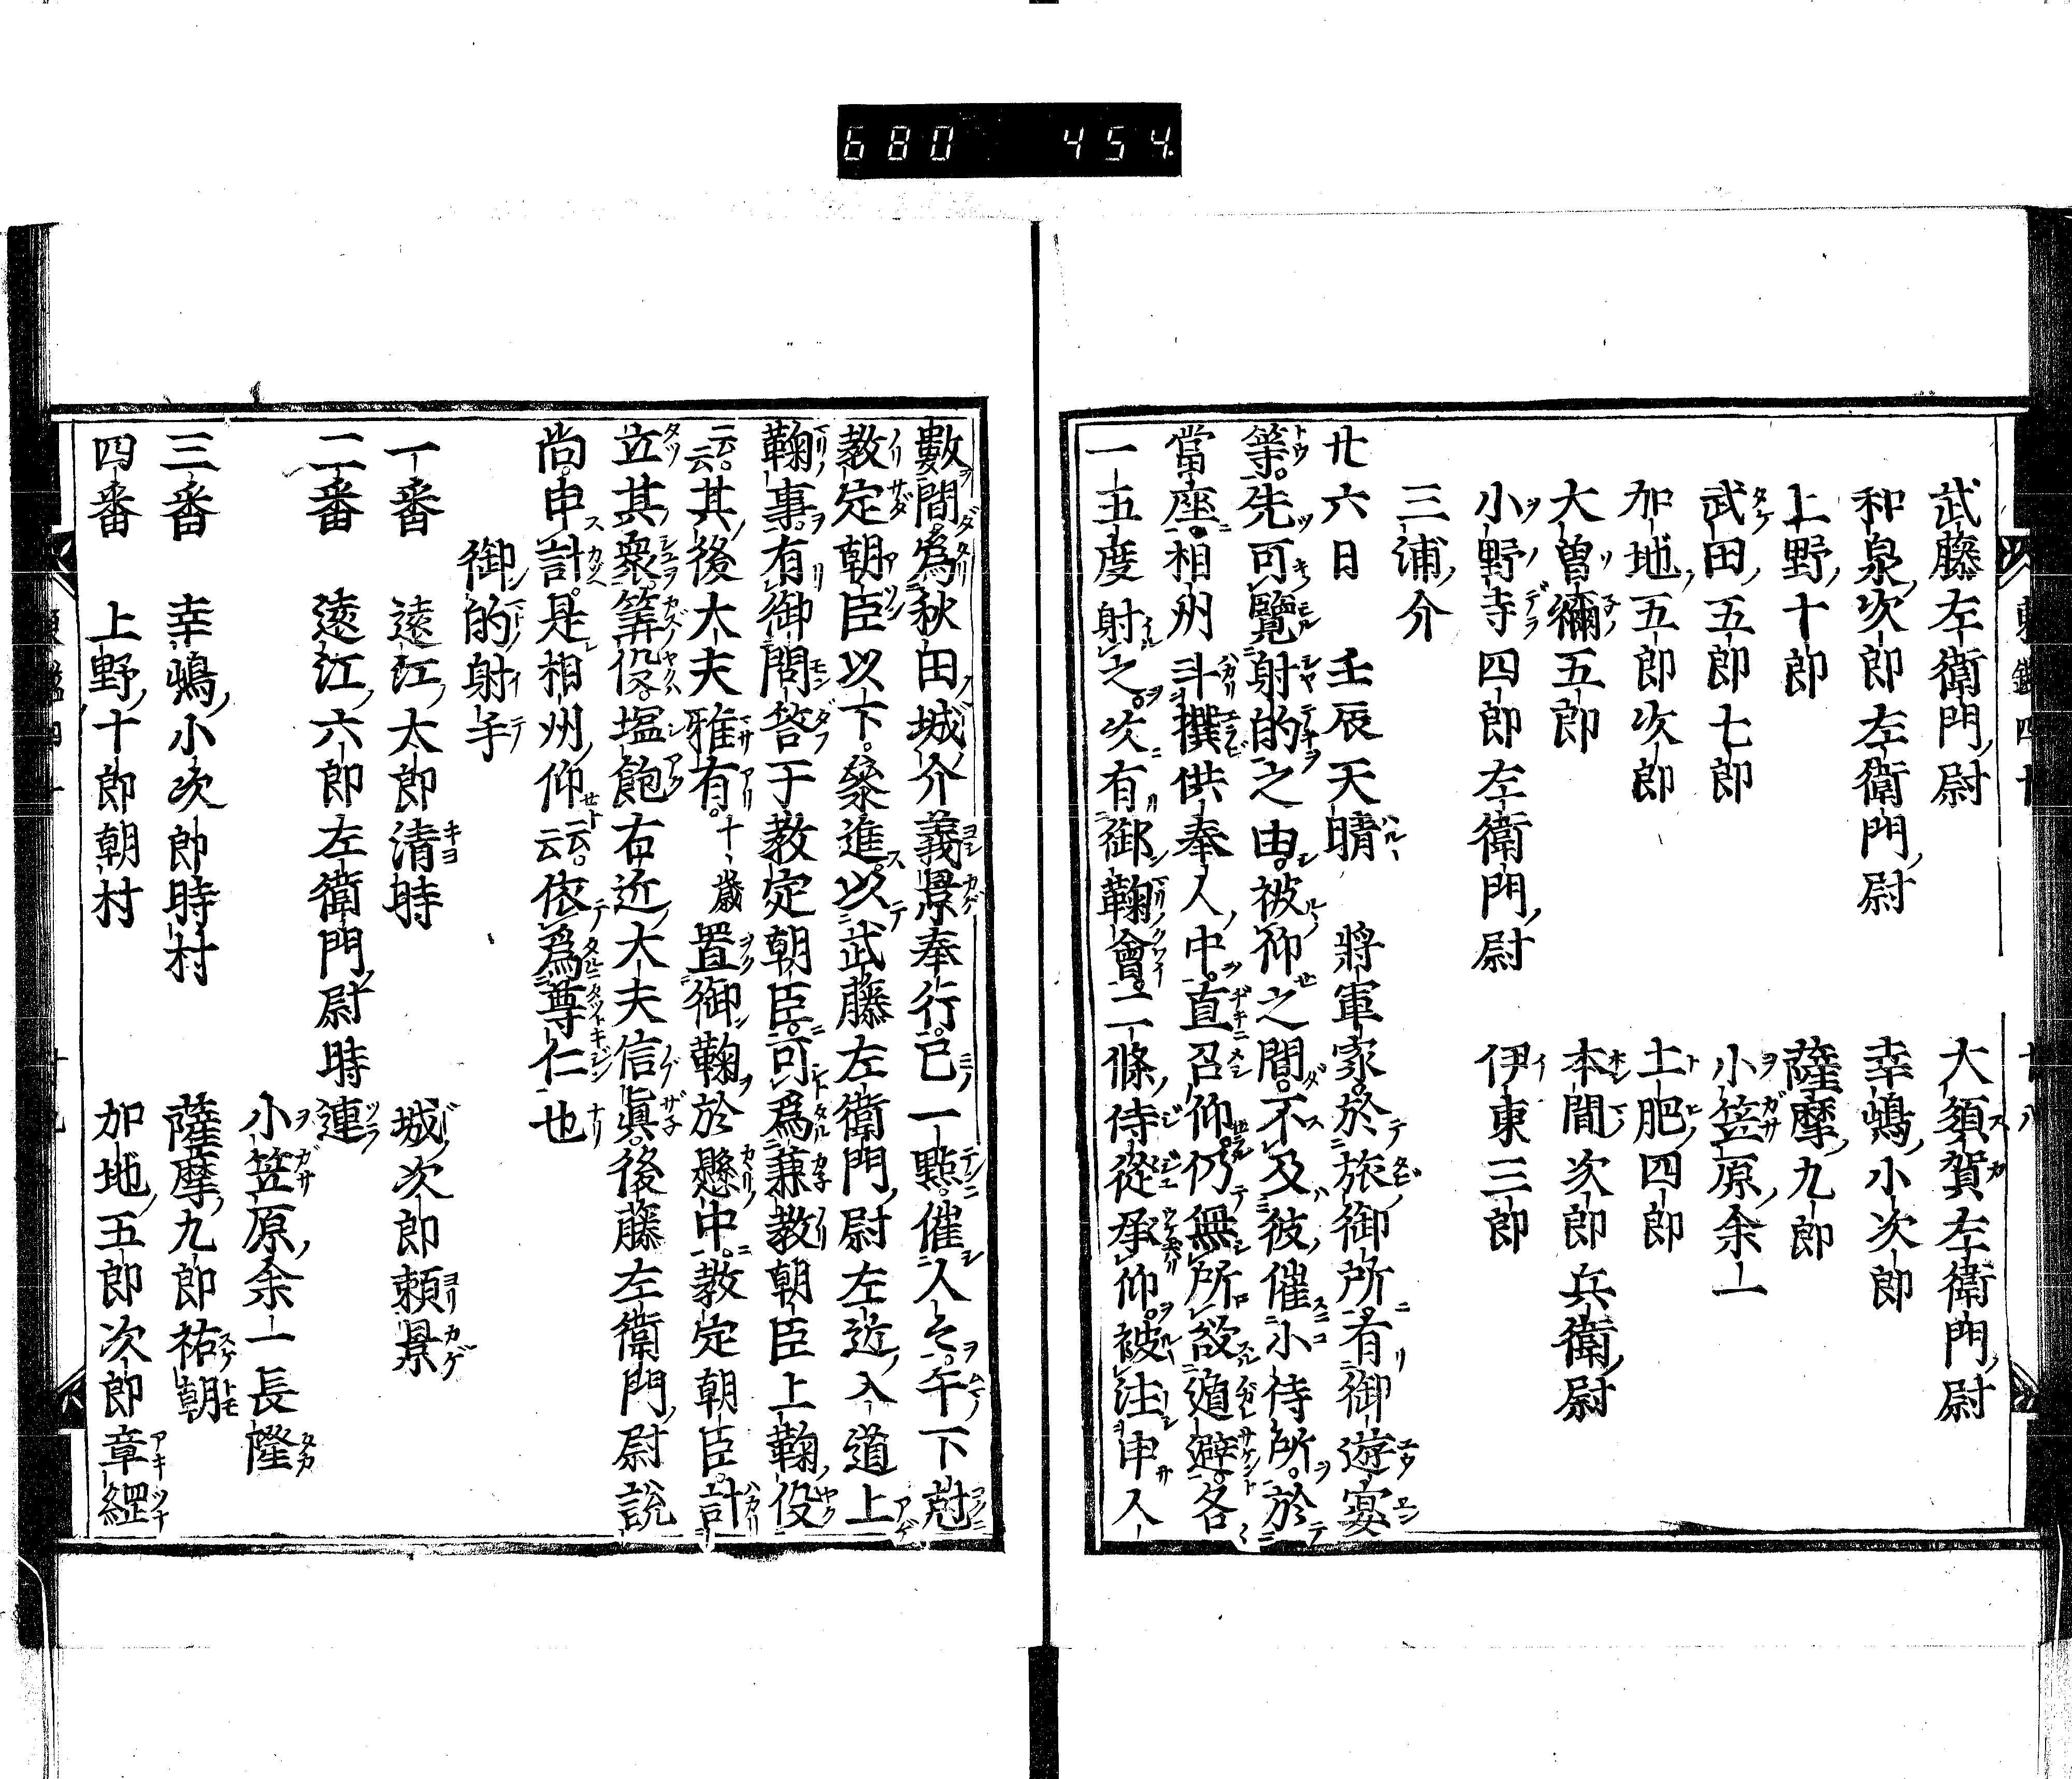 680 454
武藤左衛門尉 大須賀左衛門尉
和泉次郎左衛門尉 幸嶋小次郎
上野十郎 薩摩九郎
武田五郎七郎 小笠原余一
加地五郎次郎 土肥四郎
大曽禰五郎 本間次郎兵衛尉
小野寺四郎左衛門尉 伊東三郎
三浦介
廿六日 壬辰天晴 將軍家於旅御所有御遊宴
等先可覽射的之由被仰之間不及彼催小侍所於
當座相州斗撰供奉人中直召仰仍無所欲遁避各
一五度射之次有御鞠會二條侍從承仰被注申人
數間爲秋田城介義景奉行已一點催人々午下尅
教定朝臣以下參進以武藤左衛門尉左近入道上
鞠事有御問答于教定朝臣可爲兼教朝臣上鞠役
云云其後大夫雅有十歳置御鞠於懸中教定朝臣計
立其衆筭役塩飽右近大夫信眞後藤左衛門尉説
尚申計是相州仰云云依爲尊仁也
御的射手
一番 遠江太郎清時 城次郎頼景
二番 遠江六郎左衛門尉時連
小笠原余一長隆
三番 幸嶋小次郎時村 薩摩九郎祐朝
四番 上野十郎朝村 加地五郎次郎章經